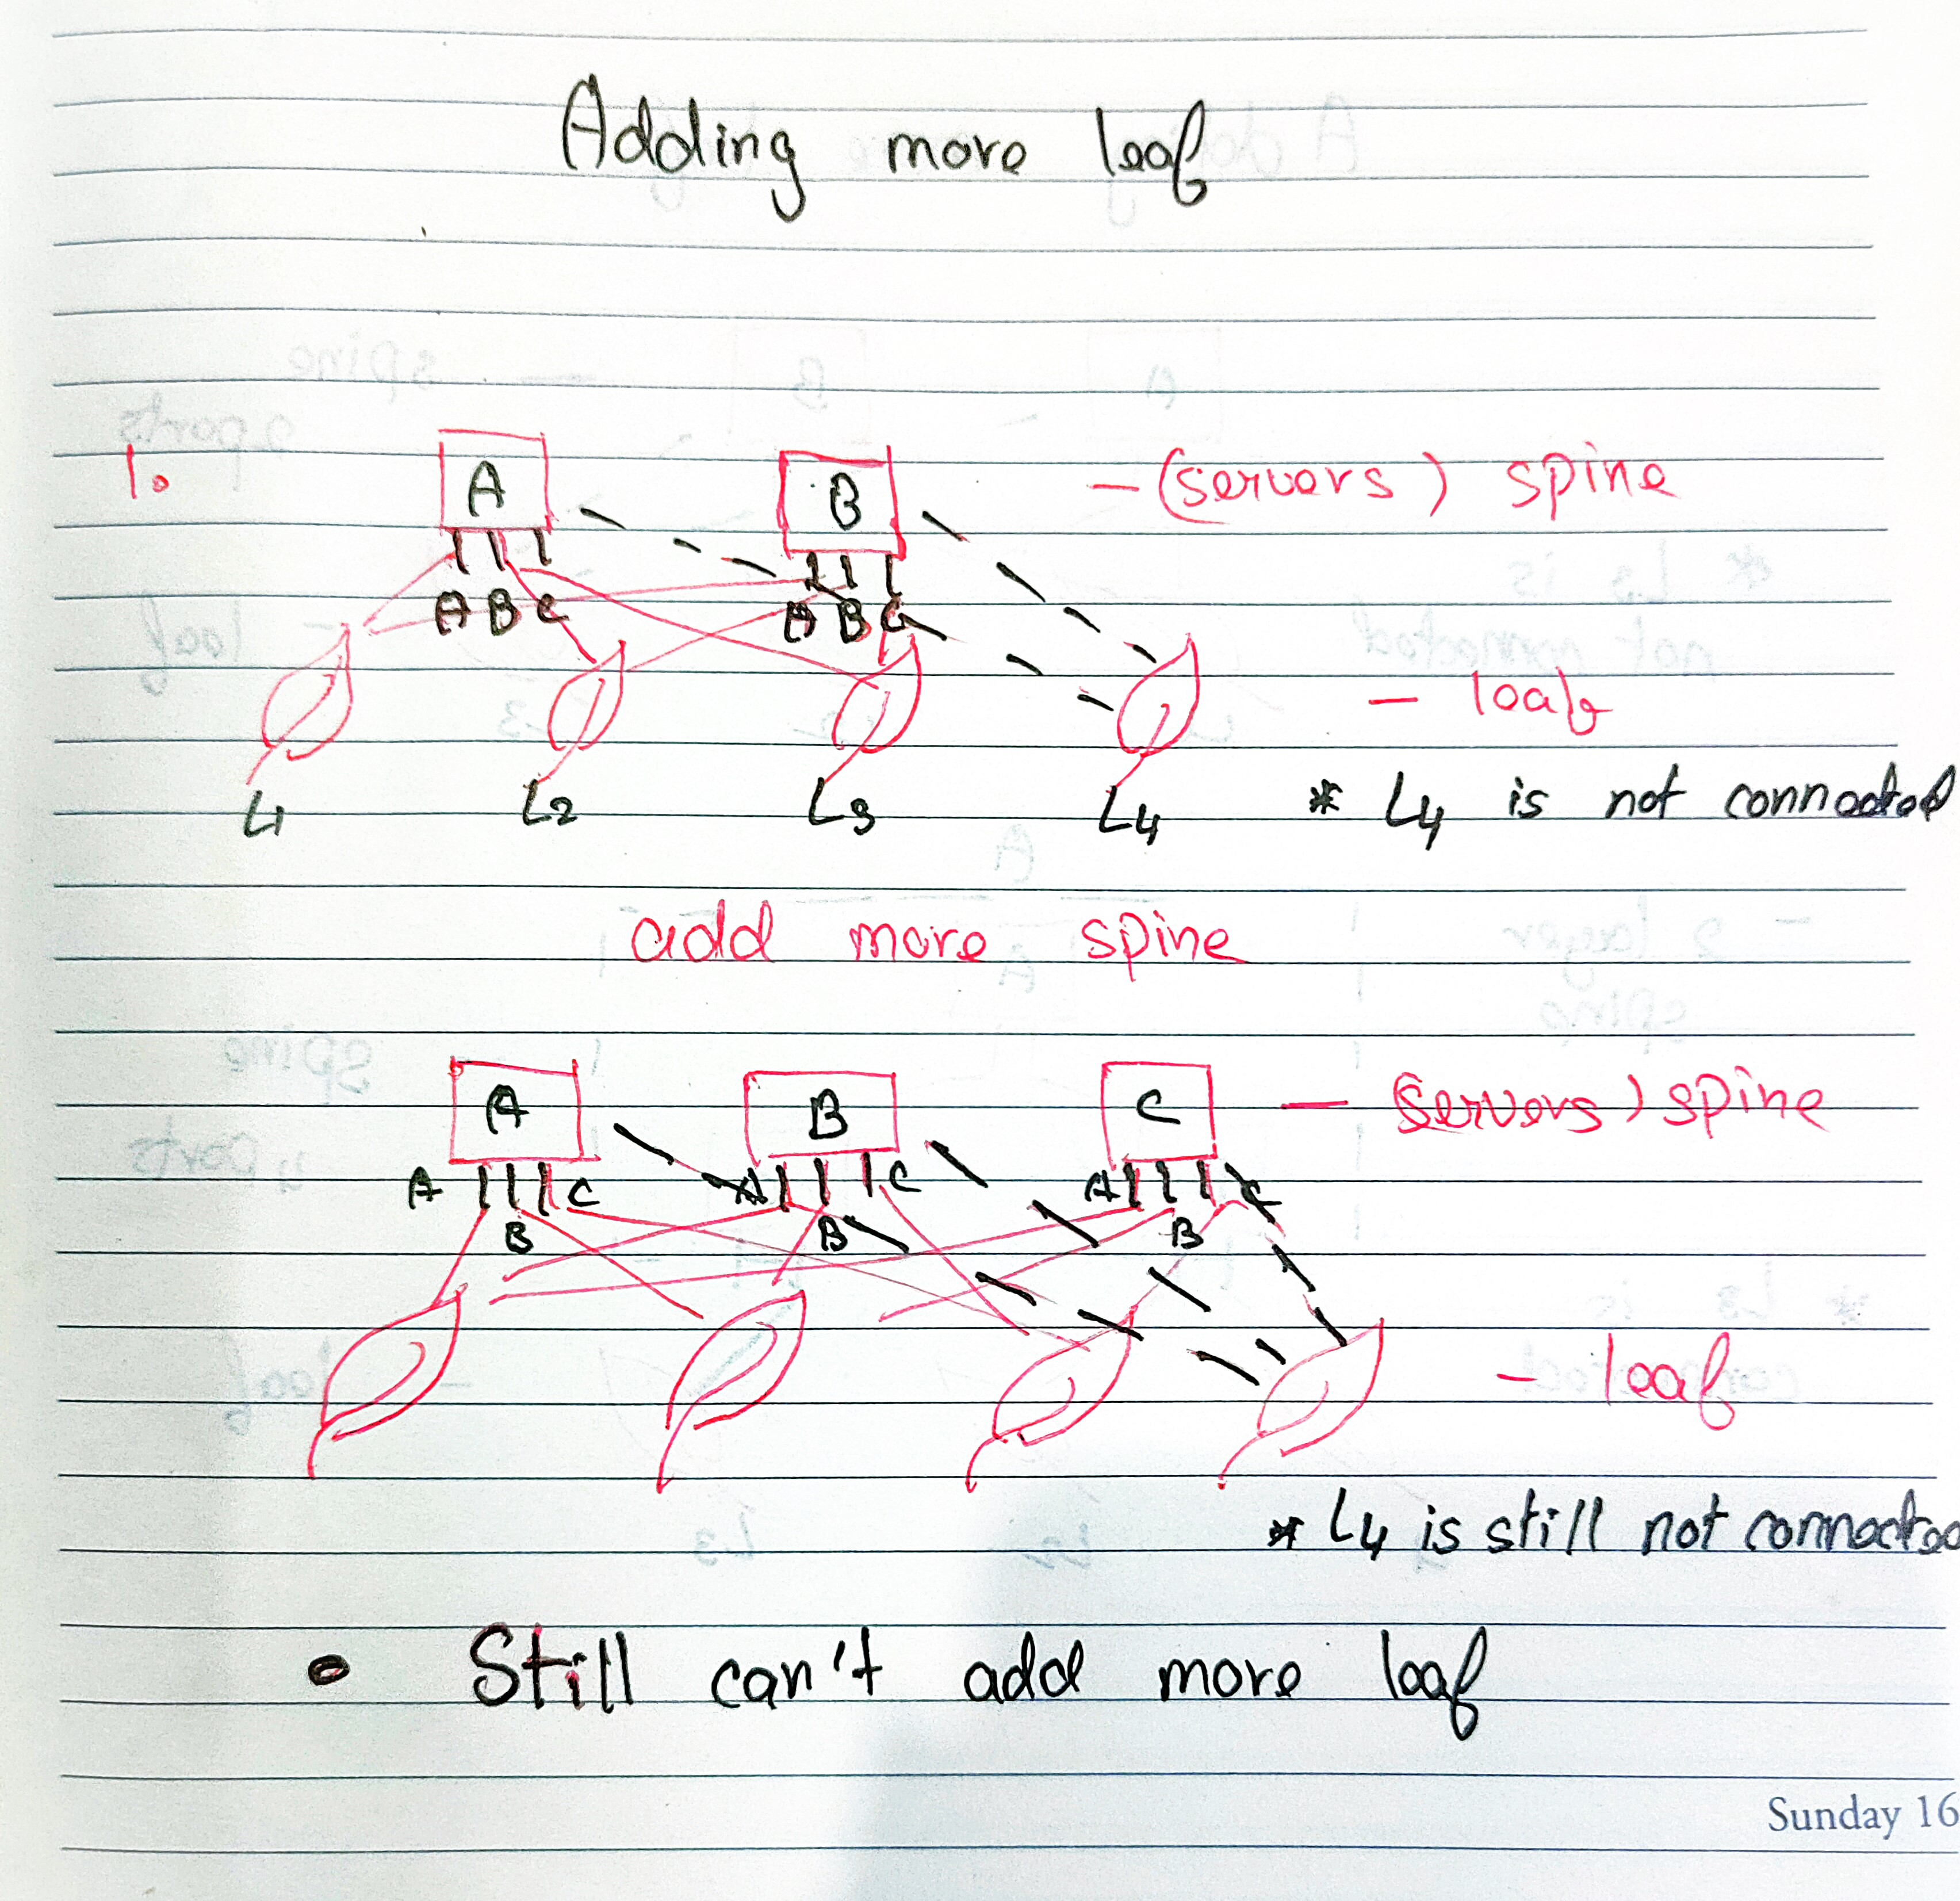 Adding more leaf
1. A B - (servers) spine
A B C A B C
- leaf
L1 L2 L3 L4 * L4 is not connected
add more spine
A B C - servers) spine
A C A C A C
B B B
- leaf
* L4 is still not connected
• Still can't add more leaf
Sunday 16